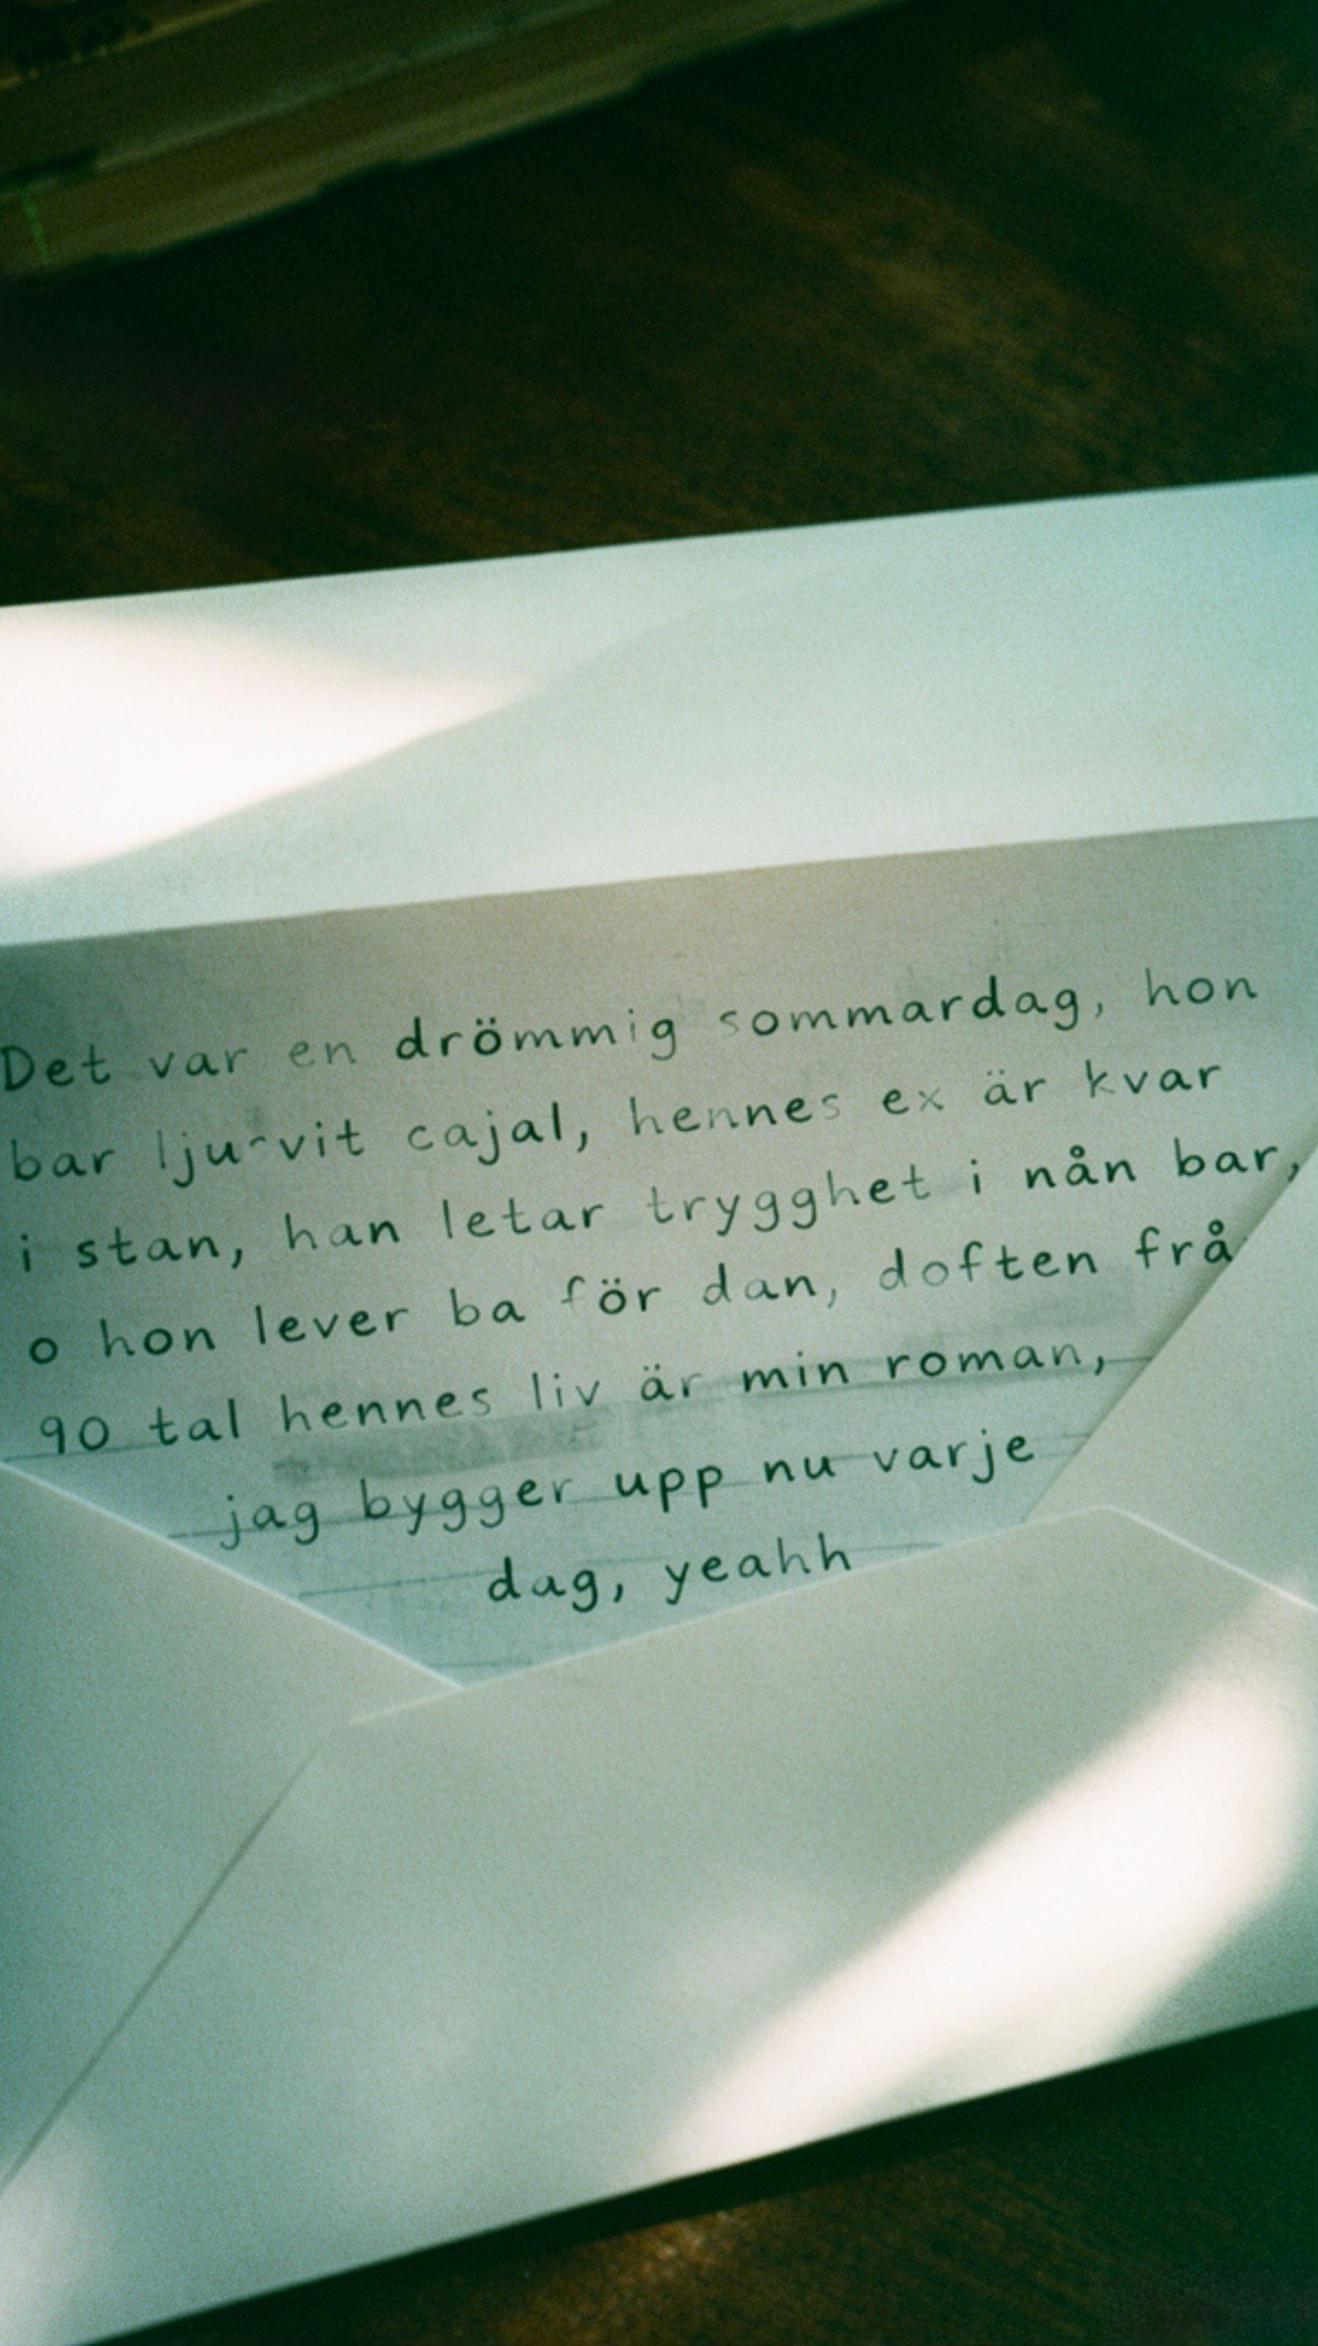 Det var en drömmig sommardag, hon
bar vit cajal, hennes ex är kvar
i stan, han letar trygghet i nån bar,
o hon lever ba för dan, doften frå
90 tal hennes liv är min roman,
jag bygger upp nu varje
dag, yeahh